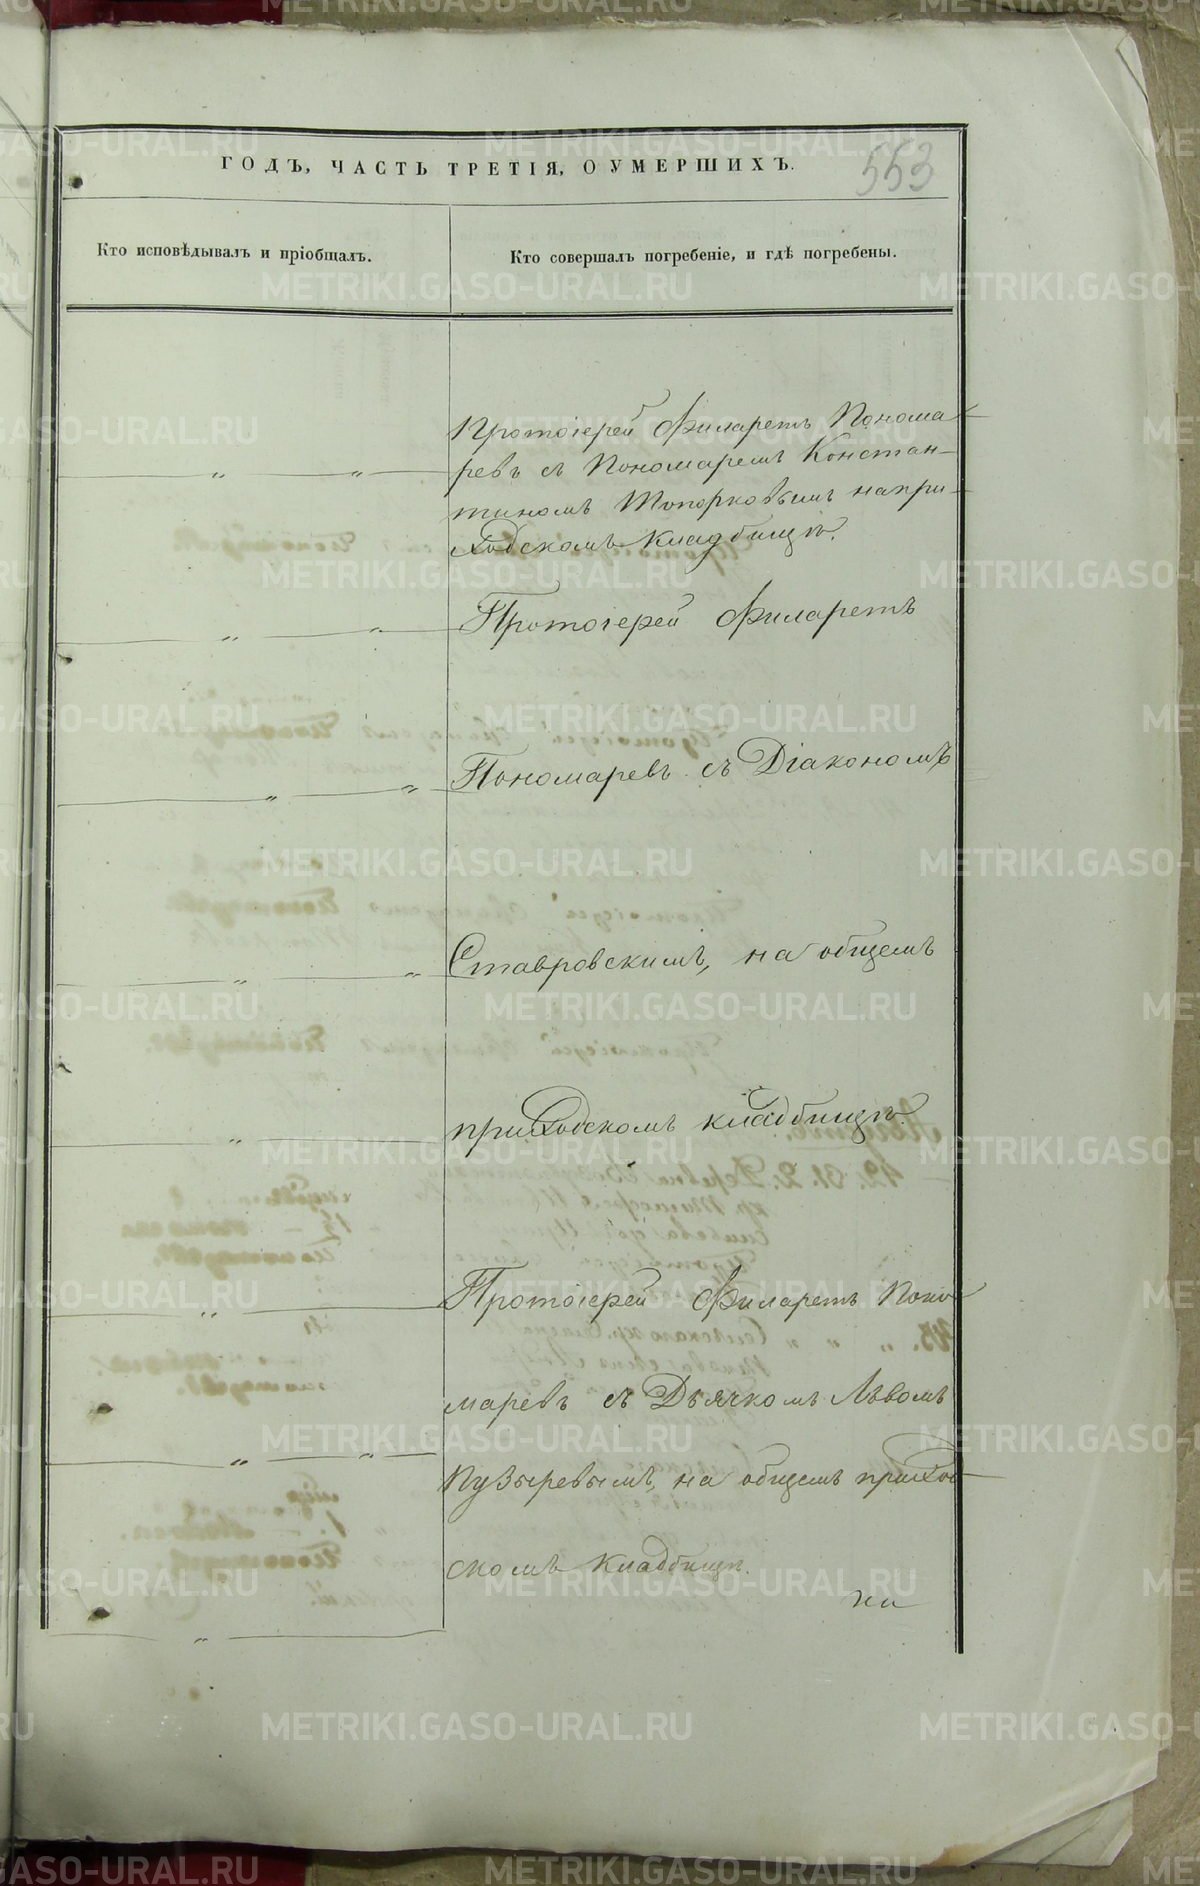 ГОДЪ, ЧАСТЬ ТРЕТІЯ, О УМЕРШИХЪ.
553
Кто исповѣдывалъ и пріобщалъ.
Кто совершалъ погребеніе, и гдѣ погребены.
Протоіерей Филаретъ Понома
ревъ съ Пономаремъ Констан-
тиномъ Топорковымъ на при
ходскомъ кладбищѣ.
Протоіерей Филаретъ
Пономаревъ съ Діакономъ
Ставровскимъ, на общемъ
приходскомъ кладбищѣ.
Протоіерей Филаретъ Поно
маревъ съ Дьячкомъ Львомъ
Пузыревымъ, на общемъ приход
скомъ кладбищѣ.
METRIKI.GASO-URAL.RU